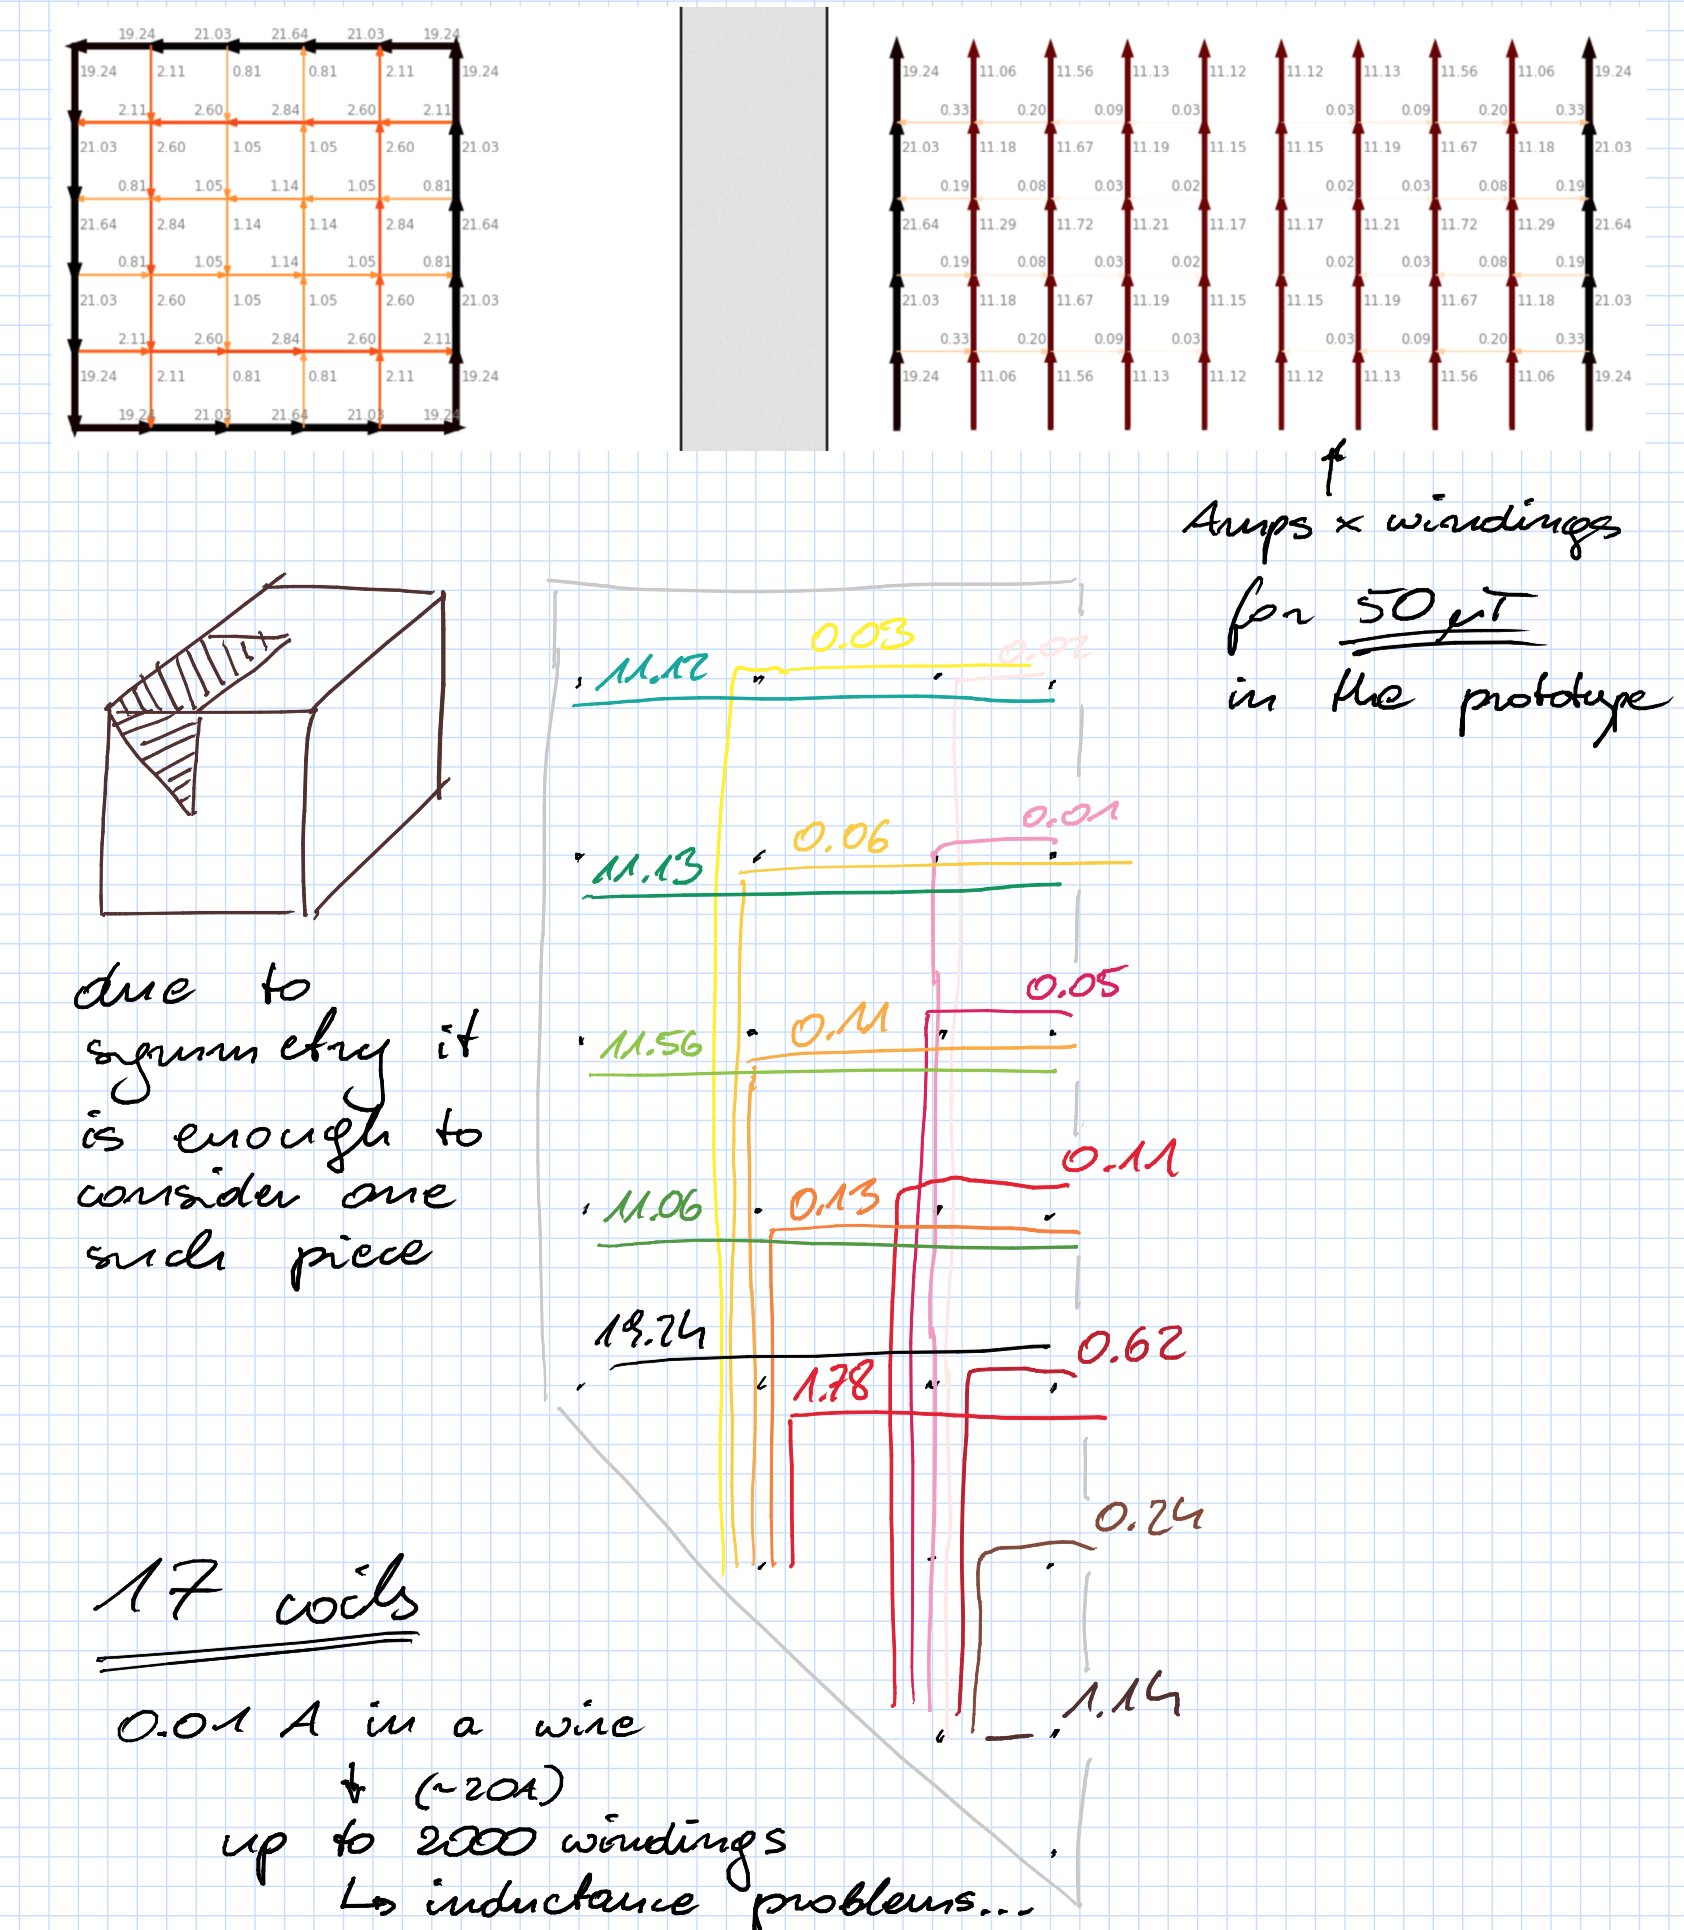 19.24 21.03 21.64 21.03 19.24
19.24 2.11 0.81 0.81 2.11 19.24
2.11 2.60 2.84 2.60 2.11
21.03 2.60 1.05 1.05 2.60 21.03
0.81 1.05 1.14 1.05 0.81
21.64 2.84 1.14 1.14 2.84 21.64
0.81 1.05 1.14 1.05 0.81
21.03 2.60 1.05 1.05 2.60 21.03
2.11 2.60 2.84 2.60 2.11
19.24 2.11 0.81 0.81 2.11 19.24
19.24 21.03 21.64 21.03 19.24
19.24 11.06 11.56 11.13 11.12 11.12 11.13 11.56 11.06 19.24
0.33 0.20 0.09 0.03 0.03 0.09 0.20 0.33
21.03 11.18 11.67 11.19 11.15 11.15 11.19 11.67 11.18 21.03
0.19 0.08 0.03 0.02 0.02 0.03 0.08 0.19
21.64 11.29 11.72 11.21 11.17 11.17 11.21 11.72 11.29 21.64
0.19 0.08 0.03 0.02 0.02 0.03 0.08 0.19
21.03 11.18 11.67 11.19 11.15 11.15 11.19 11.67 11.18 21.03
0.33 0.20 0.09 0.03 0.03 0.09 0.20 0.33
19.24 11.06 11.56 11.13 11.12 11.12 11.13 11.56 11.06 19.24
Amps x windings
for 50 µT
in the prototype
due to
symmetry it
is enough to
consider one
such piece
0.03
0.02
11.12
0.01
0.06
11.13
0.05
0.11
11.56
0.11
0.13
11.06
19.24
0.62
1.78
0.24
1.14
17 coils
0.01 A in a wire
↓ (~20A)
up to 2000 windings
↳ inductance problems...